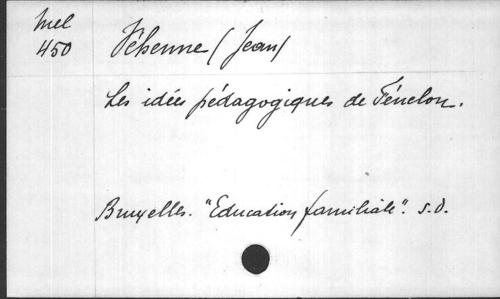 Mel
450
Véhenne (Jean)
Les idées pédagogiques de Fénelon.
Bruxelles. "Education familiale". s.d.